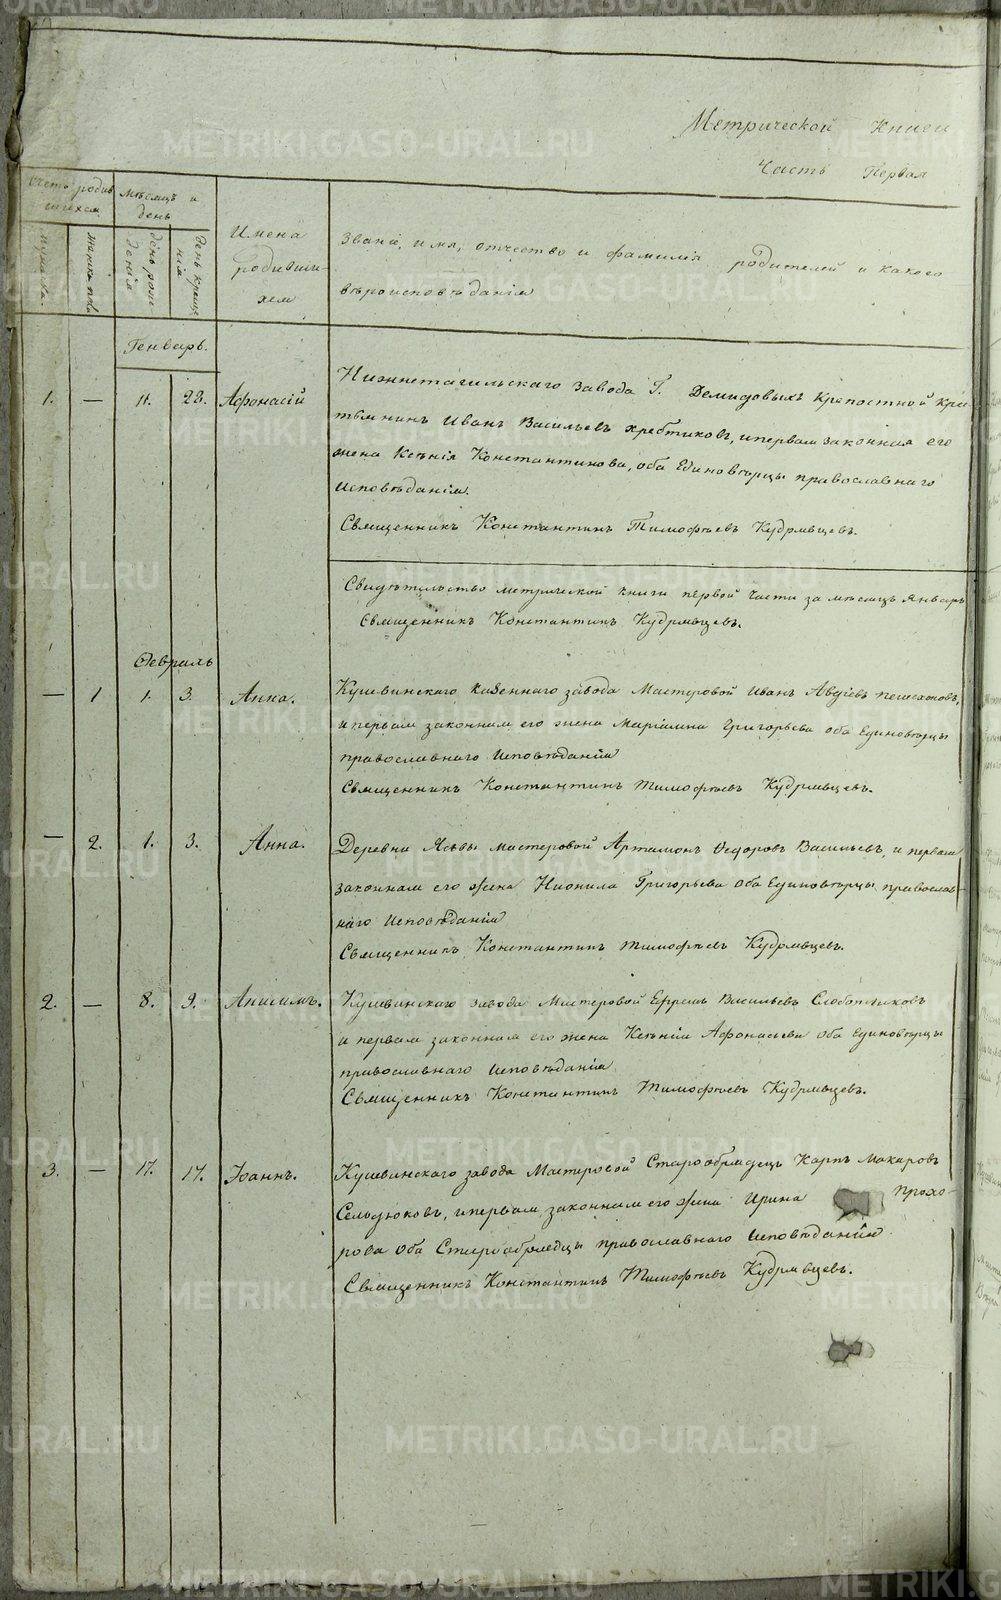 Метрической Книги
Часть Первая
Счетъ родив
шихся
Мѣсяцъ и
день
мужска.
женска пола
день рож
денія
день креще
нія
Имена
родивши-
хся
Званіе, имя, отчество и фамилія родителей и какого
вѣроисповѣданія
Генварь.
1. — 11. 22. Афонасій
Нижнетагильскаго завода Г. Демидовыхъ крепостной кре-
стьянинъ Иванъ Васильевъ Хребтиковъ, и первая законная его
жена Ксѣнія Константинова, оба Единовѣрцы православнаго
Исповѣданія.
Священникъ Константинъ Тимофѣевъ Кудрявцевъ.
Свидѣтельство метрической книги первой части за мѣсяцъ Январь
Священникъ Константинъ Кудрявцевъ.
Февраль
— 1 1. 3. Анна.
Кушвинскаго казеннаго завода Мастеровой Иванъ
и первая законная его жена Маріамна Григорьева оба Единовѣрцы
православнаго Исповѣданія
Священникъ Константинъ Тимофѣевъ Кудрявцевъ.
— 2. 1. 3. Анна.
Деревни мастеровой Артамонъ Федоровъ Васильевъ, и первая
законная его жена Нионила Григорьева оба Единовѣрцы православ-
наго Исповѣданія
Священникъ Константинъ Тимофѣевъ Кудрявцевъ.
2. — 8. 9. Анисимъ.
Кушвинскаго завода Мастеровой Ефремъ Васильевъ
и первая законная его жена Ксѣнія Афонасьева оба Единовѣрцы
православнаго Исповѣданія
Священникъ Константинъ Тимофѣевъ Кудрявцевъ.
3. — 17. 17. Іоаннъ.
Кушвинскаго завода Мастеровой Старообрядецъ Карпъ Макаровъ
Сельдюковъ, и первая законная его жена Ирина Прохо-
рова Оба Старообрядцы православнаго Исповѣданія.
Священникъ Константинъ Тимофѣевъ Кудрявцевъ.
METRIKI.GASO-URAL.RU